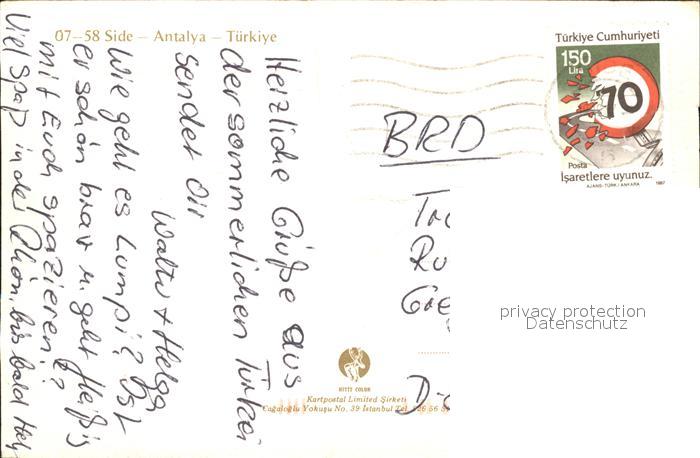 07-58 Side – Antalya – Türkiye
Türkiye Cumhuriyeti
150
Lira
70
Posta
İşaretlere uyunuz.
AJANS-TÜRK / ANKARA 1987
BRD
Herzliche Grüße aus
der sommerlichen Türkei
sendet Dir
Walter + Helga
Wie geht es Lumpi? Ist
er schön brav u. geht fleißig
mit Euch spazieren?
Viel Spaß in der Rhön, bis bald Helg
privacy protection
Datenschutz
HITIT COLOR
Kartpostal Limited Şirketi
Cağaloğlu Yokuşu No. 39 İstanbul Tel.